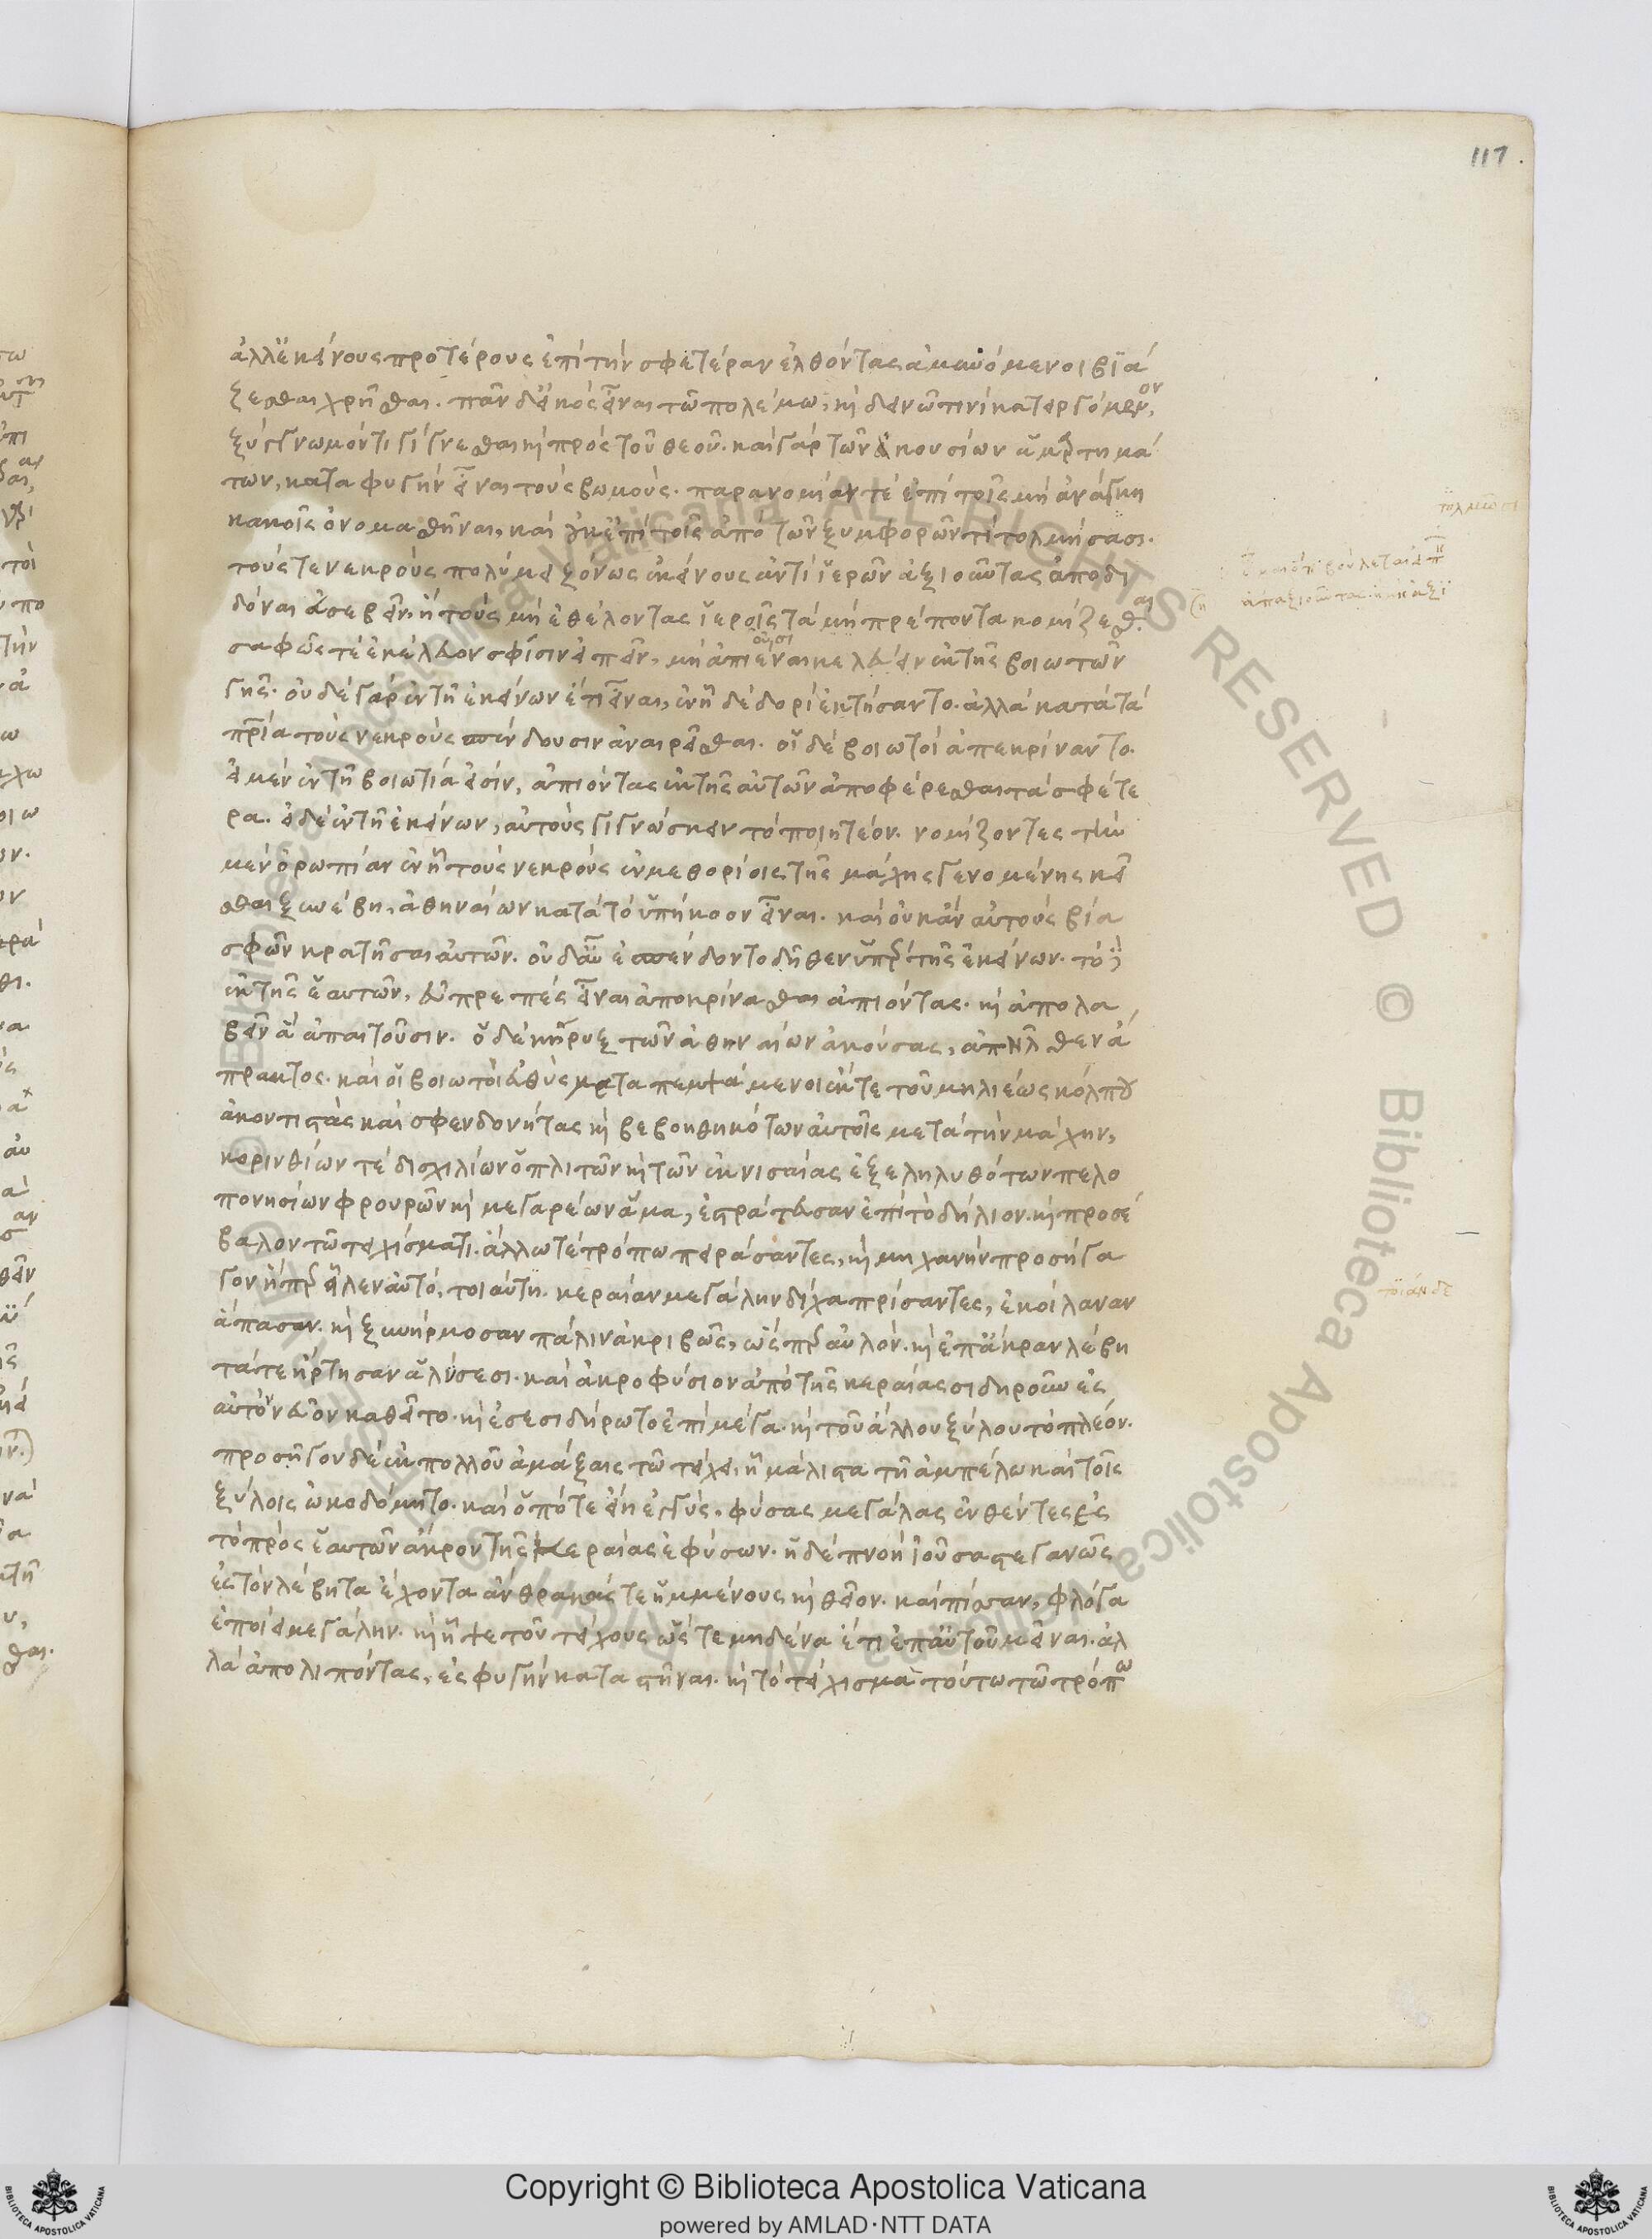 117.
ἀλλ' ἐκείνους προτέρους ἐπὶ τὴν σφετέραν ἐλθόντας ἀμυνόμενοι βιά
ζεσθαι χρῆσθαι. πᾶν δ' εἰκὸς εἶναι τῶ πολέμω, κὶ δεινῶ τινὶ κατειργόμενον,
ξύγγνωμόν τι γίγνεσθαι κὶ πρὸς τοῦ θεοῦ. καὶ γὰρ τῶν ἀκουσίων ἁμαρτημά
των, καταφυγὴν εἶναι τοὺς βωμούς. παρανομίαν τὲ ἐπὶ τοῖς μὴ ἀνάγκη
κακοῖς ὀνομασθῆναι, καὶ οὐκ ἐπὶ τοῖς ἀπὸ τῶν ξυμφορῶν τὶ τολμήσασι.
τούς τε νεκροὺς πολὺ μειζόνως ἐκείνους ἀντὶ ἱερῶν ἀξιοῦντας ἀποδι
δόναι ἀσεβεῖν, ἢ τοὺς μὴ ἐθέλοντας ἱεροῖς τὰ μὴ πρέποντα κομίζεσθαι
σαφῶς τὲ ἐκέλευον σφίσιν εἰπεῖν, μὴ ἀπιέναι κελεύειν ἐκ τῆς βοιωτῶν
οὖσι
γῆς. οὐδὲ γὰρ ἐν τῆ ἐκείνων ἔτι εἶναι, ἐν ἧ δὲ δορὶ ἐκτήσαντο. ἀλλὰ κατὰ τὰ
πρια τοὺς νεκροὺς σπένδουσιν ἀναιρεῖσθαι. οἱ δὲ βοιωτοὶ ἀπεκρίναντο.
εἰ μὲν ἐν τῆ βοιωτία εἰσίν, ἀπιόντας ἐκ τῆς αὐτῶν ἀποφέρεσθαι τὰ σφέτε
ρα. εἰ δὲ ἐν τῆ ἐκείνων, αὐτοὺς γιγνώσκειν τὸ ποιητέον. νομίζοντες τὴν
μὲν ὀρωπίαν ἐν ἧ τοὺς νεκροὺς ἐν μεθορίοις τῆς μάχης γενομένης κεῖ
σθαι ξυνέβη, ἀθηναίων κατὰ τὸ ὑπήκοον εἶναι. καὶ οὐκ ἂν αὐτοὺς βία
σφῶν κρατῆσαι αὐτῶν. οὐδ' αὖ ἐσπένδοντο δῆθεν ὑπὲρ τῆς ἐκείνων. τὸ δὲ
ἐκ τῆς ἑαυτῶν, εὐπρεπὲς εἶναι ἀποκρίνασθαι ἀπιόντας. κὶ ἀπολα
βεῖν ἃ ἀπαιτοῦσιν. ὁ δὲ κῆρυξ τῶν ἀθηναίων ἀκούσας, ἀπῆλθεν ἄ
πρακτος. καὶ οἱ βοιωτοὶ εὐθὺς μεταπεμψάμενοι ἔκ τε τοῦ μηλιέως κόλπου
ἀκοντιστὰς καὶ σφενδονήτας κὶ βεβοηθηκότων αὐτοῖς μετὰ τὴν μάχην,
κορινθίων τὲ δισχιλίων ὁπλιτῶν κὶ τῶν ἐκ νισαίας ἐξεληλυθότων πελο
πονησίων φρουρῶν κὶ μεγαρέων ἅμα, ἐστράτευσαν ἐπὶ τὸ δήλιον. κὶ προσέ
βαλον τῶ τειχίσματι. ἄλλω τὲ τρόπω πειράσαντες, κὶ μηχανὴν προσήγα
γον ἥπερ εἷλεν αὐτό, τοιαύτη. κεραίαν μεγάλην δίχα πρίσαντες, ἐκοίλαναν
ἅπασαν. κὶ ξυνήρμοσαν πάλιν ἀκριβῶς, ὡς περ αὐλόν. κὶ ἐπ' ἄκραν λέβη
τά τε ἤρτησαν ἁλύσεσι. καὶ ἀκροφύσιον ἀπὸ τῆς κεραίας σιδηροῦν ἐς
αὐτὸν νεῦον καθεῖτο. κὶ ἐσεσιδήρωτο ἐπὶ μέγα. κὶ τοῦ ἄλλου ξύλου τὸ πλέον.
προσῆγον δὲ ἐκ πολλοῦ ἁμάξαις τῶ τείχει, ἧ μάλιστα τῆ ἀμπέλω καὶ τοῖς
ξύλοις ὠκοδόμητο. καὶ ὁπότε εἴη ἐγγύς. φύσας μεγάλας ἐνθέντες ἐς
τὸ πρὸς ἑαυτῶν ἄκρον τῆς κεραίας ἐφύσων. ἡ δὲ πνοὴ ἰοῦσα στεγανῶς
ἐς τὸν λέβητα ἔχοντα ἄνθρακάς τε ἡμμένους κὶ θεῖον. καὶ πίσσαν, φλόγα
ἐποίει μεγάλην. κὶ ἧψε τοῦ τείχους ὥς τε μηδένα ἔτι ἐπ' αὐτοῦ μεῖναι. ἀλ
λὰ ἀπολιπόντας, ἐς φυγὴν καταστῆναι. κὶ τὸ τείχισμα τούτω τῶ τρόπω
τοιάνδε